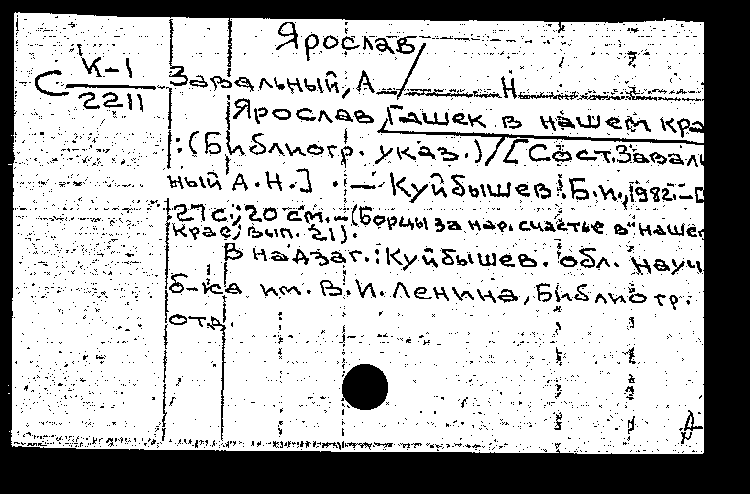 Ярослав/
С К-1
2211
Завальный, А Н
Ярослав Гашек в нашем кра
:(Библиогр. указ.)/[Сост.Заваль
ный А.Н.]. — Куйбышев:Б.и.,1982.—
27с.;20 см.—(Борцы за нар. счастье в наше
крае; вып. 21).
В надзаг.:Куйбышев. обл. науч
б-ка им. В.И.Ленина, Библиогр.
отд.